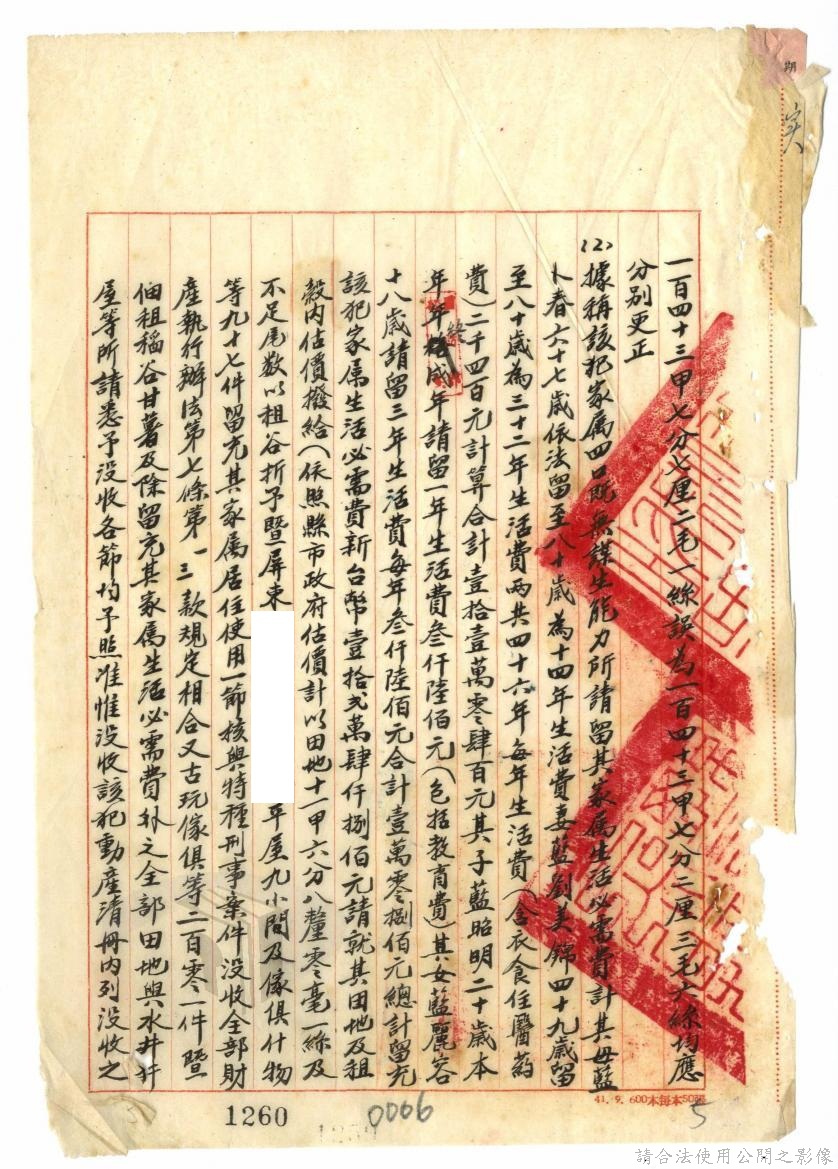 一百四十三甲七分七厘二毛一絲誤為一百四十三甲七分二厘三毛六絲均應
分別更正
(2)據稱該犯家属四口既無謀生能力所請留其家属生活必需費計其母藍
卜春六十七歲依法留至八十歲為十四年生活費妻藍劉美錦四十九歲留
至八十歲為三十二年生活費兩共四十六年每年生活費(含衣食住醫葯
費)二千四百元計算合計壹拾壹萬零肆百元其子藍昭明二十歲本
年年終成年請留一年生活費叁仟陸佰元(包括教育費)其女藍麗容
十八歲請留三年生活費每年叁仟陸佰元合計壹萬零捌佰元總計留充
該犯家属生活必需費新台幣壹拾弍萬肆仟捌佰元請就其田地及租
穀内估價撥給(依照縣市政府估價計以田地十一甲六分八釐零毫一絲及
不足尾数以租谷折予暨屏東 年屋九小間及傢俱什物
等九十七件留充其家属居住使用一節核與特種刑事案件没收全部財
產執行辦法第七條第一三款規定相合又古玩傢俱等二百零一件暨
佃租稻谷甘薯及除留充其家属生活必需費外之全部田地與水井
屋等所請悉予没收各節均予照准惟没收該犯動產清冊内列没收之
41.9.600本每本50
1260
0066
5
期
实
請合法使用公開之影像